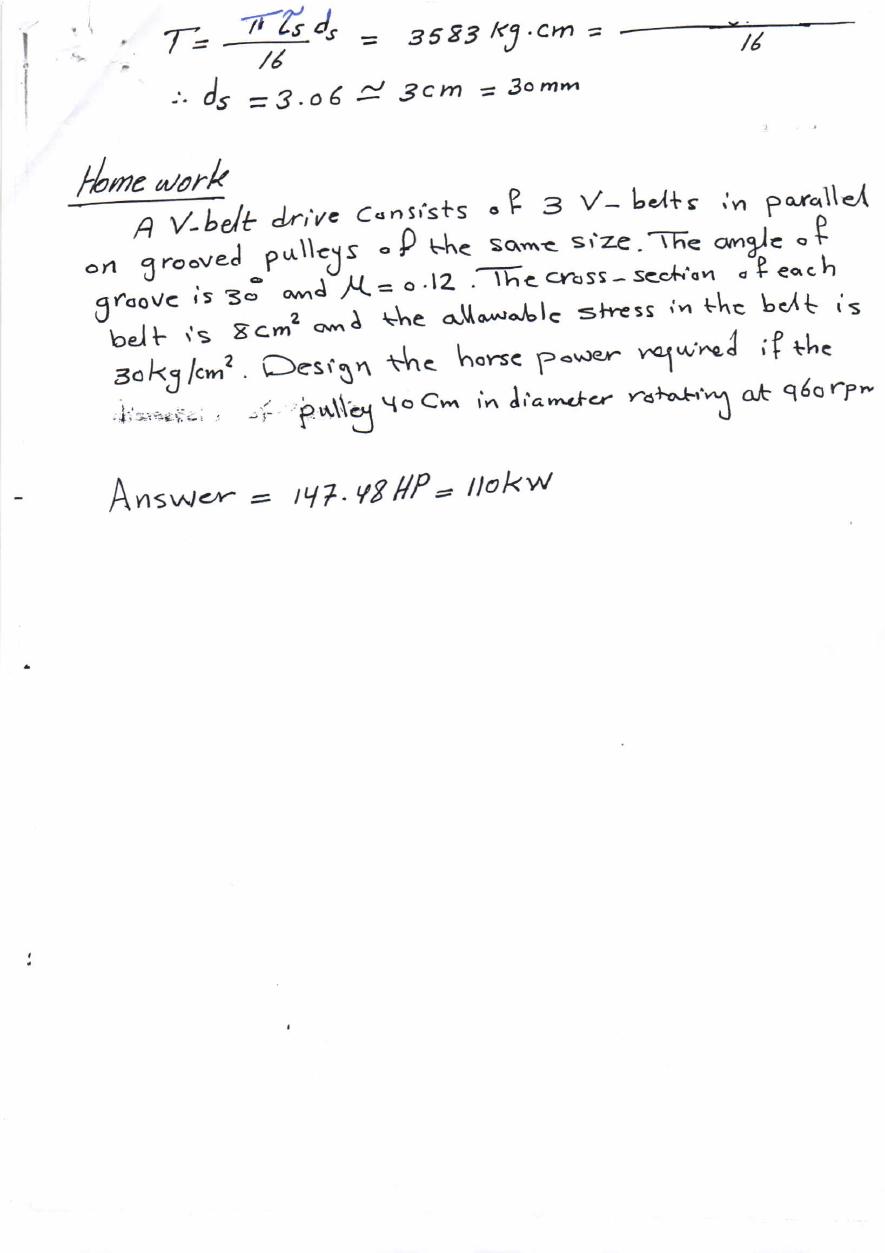 T = π τs ds / 16 = 3583 kg.cm = / 16
∴ ds = 3.06 ≃ 3cm = 30mm
Home work
A V-belt drive consists of 3 V-belts in parallel
on grooved pulleys of the same size. The angle of
groove is 30° and M = 0.12. The cross-section of each
belt is 8cm² and the allawable stress in the belt is
30kg/cm². Design the horse power required if the
of pulley 40 Cm in diameter rotating at 960rpm
Answer = 147.48 HP = 110kw